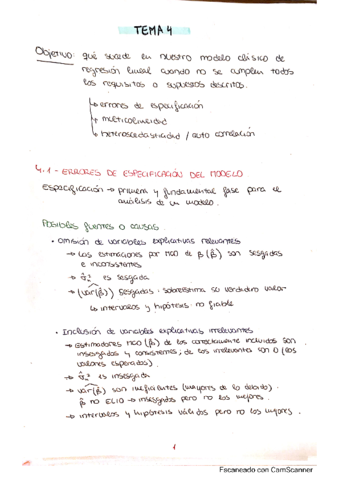 TEMA 4
Objetivo: qué sucede en nuestro modelo clásico de
regresión lineal cuando no se cumplen todos
los requisitos o supuestos descritos.
↳ errores de especificación
↳ multicolinealidad
↳ heteroscedasticidad / auto correlación
4.1 - ERRORES DE ESPECIFICACIÓN DEL MODELO
Especificación → primera y fundamental fase para el
análisis de un modelo.
Posibles fuentes o causas.
• Omisión de variables explicativas relevantes
→ Las estimaciones por MCO de β (β̂) son sesgadas
e inconsistentes
→ σ̂u² es sesgada
→ (var(β̂)) sesgadas. sobreestima su verdadero valor
↳ intervalos y hipótesis no fiable
• Inclusión de variables explicativas irrelevantes
→ estimadores MCO (β̂) de los correctamente incluidos son
insesgados y consistentes; de los irrelevantes son 0 (los
valores esperados).
→ σ̂u² es insesgada
→ var(β̂) son ineficientes (mayores de lo debido).
β̂ no ELIO → insesgados pero no los mejores.
→ intervalos y hipótesis válidos pero no los mejores.
1
Escaneado con CamScanner